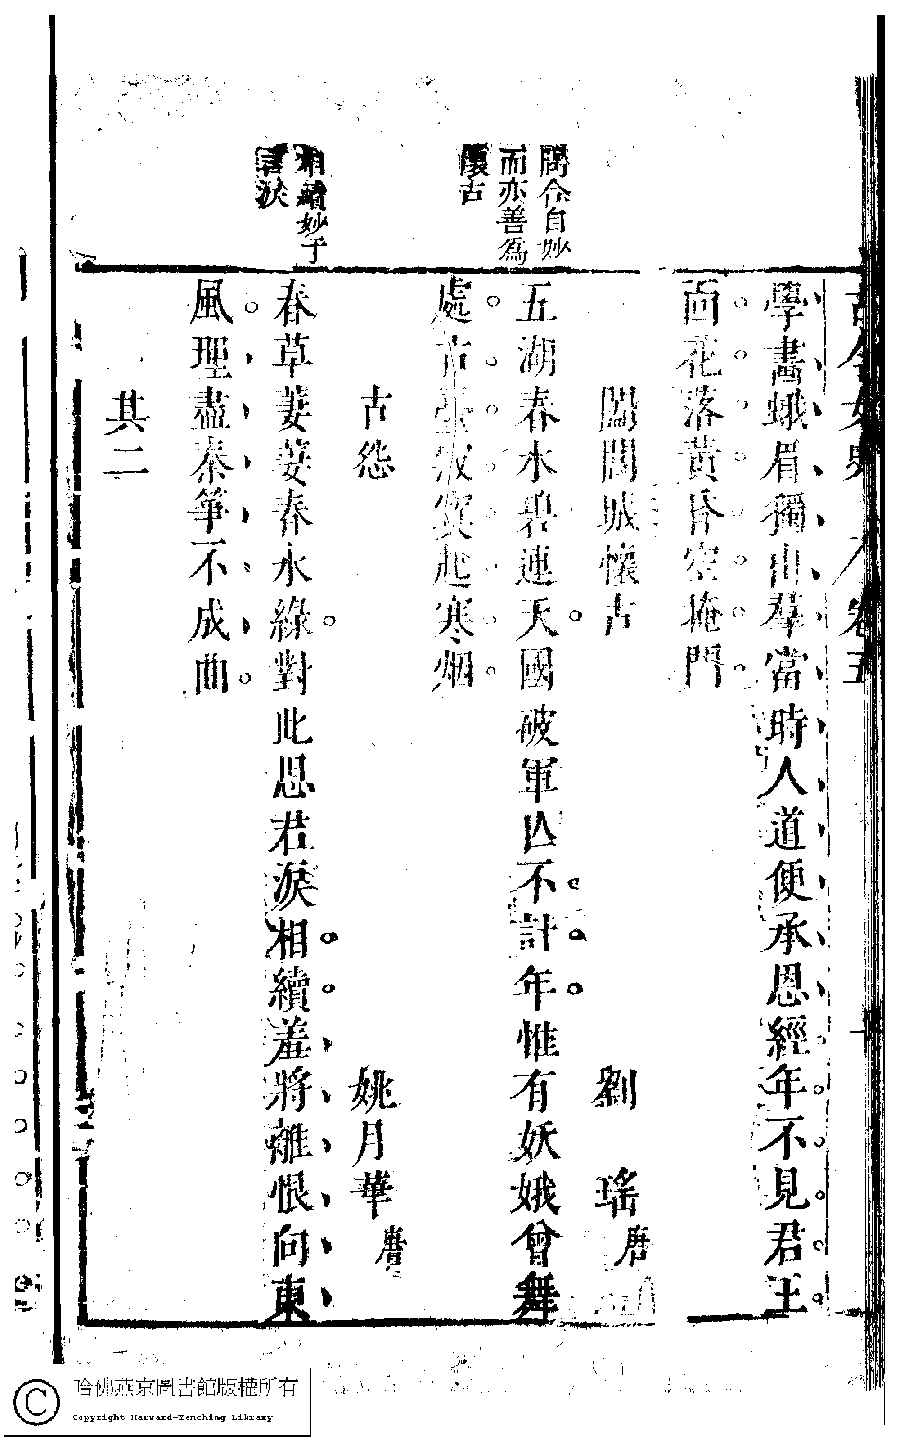 古今女史 卷五
學畫蛾眉獨出羣當時人道便承恩經年不見君王
面花落黃昏空掩門
闔閭城懷古 劉瑤 唐
自妙
而亦善爲
懷古
五湖春水碧連天國破軍亾不計年惟有妖娥曾舞
處古臺寂寞起寒烟
古怨 姚月華 唐
相續妙于
言淚
春草萋萋春水綠對此思君淚相續羞將離恨向東
風理盡秦箏不成曲
其二
哈佛燕京圖書館版權所有
Copyright Harvard-Yenching Library